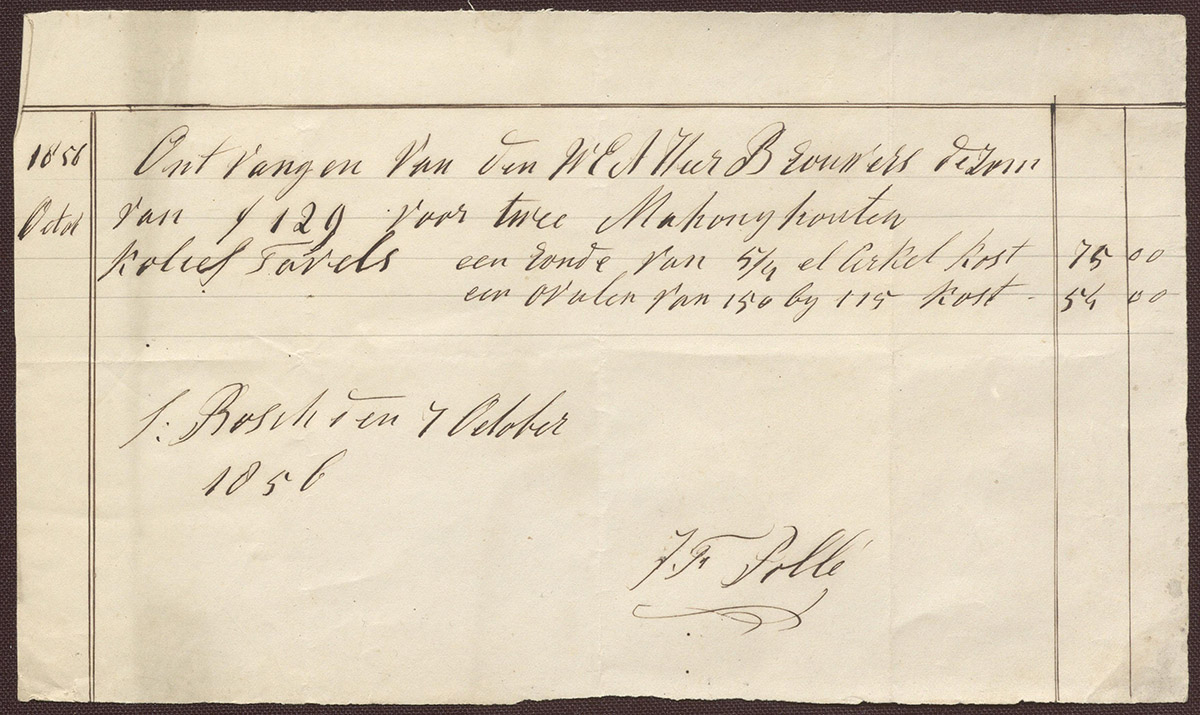 1856 Ontvangen van den WEA Heer Brouwers de zom
Octob van f 129 voor twee Mahonyhouten
Kolies Tavels een ronde van 5/4 el Cirkel kost 75 00
een ovalen van 150 by 115 kost - 54 00
s: Bosch den 7 October
1856
J.F Pollé